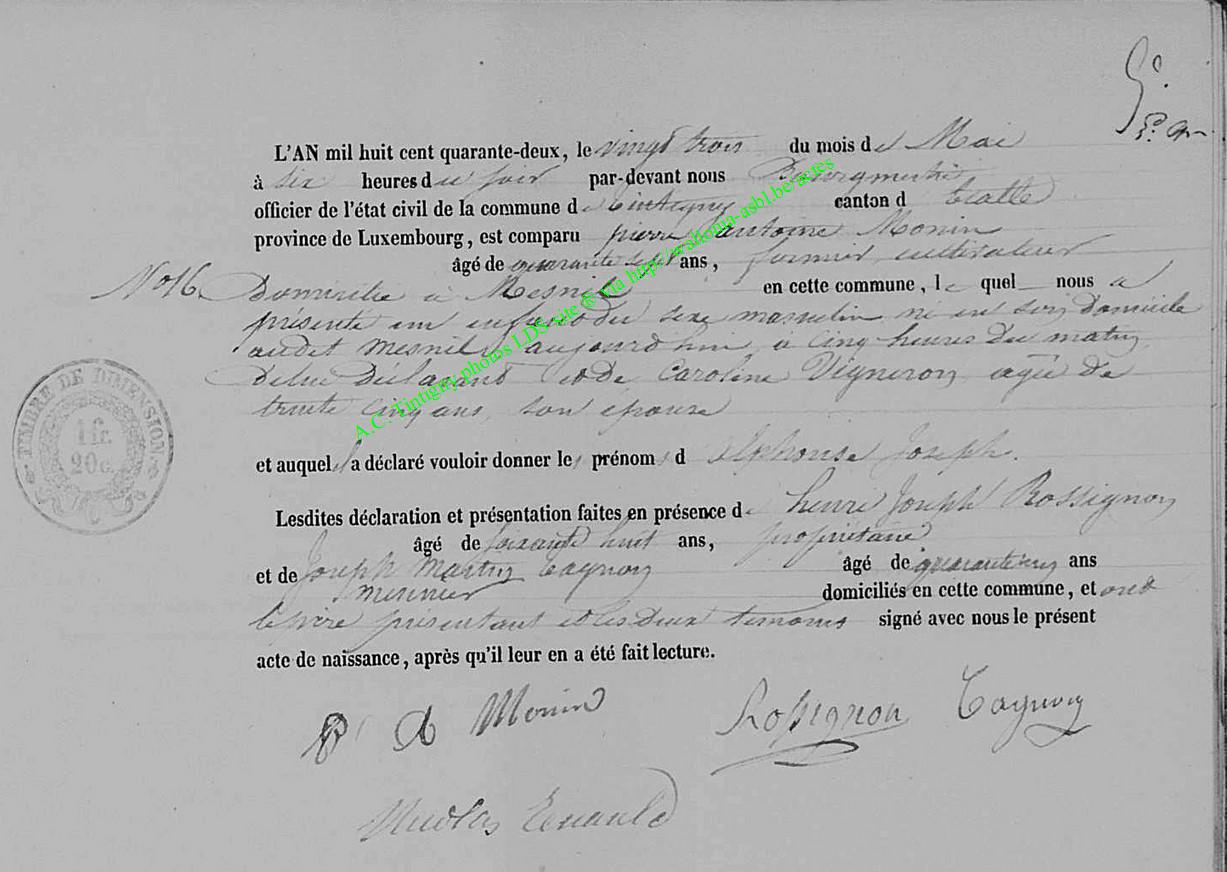 L'AN mil huit cent quarante-deux, le vingt trois du mois de Mai
à six heures du soir par-devant nous Bourgmestre
officier de l'état civil de la commune de tintigny canton d' Etalle
province de Luxembourg, est comparu pierre antoine Monin
âgé de quarante sept ans, fermier cultivateur
N° 16. Domicilié à Mesnil en cette commune, le quel nous a
présenté un enfant du sexe masculin né en son domicile
audit Mesnil aujourdhui a cinq heures du matin
de lui déclarant et de Caroline Vigneron agée de
trente cinq ans, son épouse
et auquel il a déclaré vouloir donner les prénoms d' alphonse Joseph.
Lesdites déclaration et présentation faites en présence de henri Joseph Rossignon
âgé de soixante huit ans, propriétaire
et de Joseph Martin tagnon âgé de ans
meunier domiciliés en cette commune, et ont
le père présentant et les deux temoins signé avec nous le présent
acte de naissance, après qu'il leur en a été fait lecture.
P A Monin Rossignon Tagnon
Nicolas
TIMBRE DE DIMENSION
1 fr.
20 c.
A.C. Tintigny photos LDS-site @ via http://wallonia-asbl.be/actes